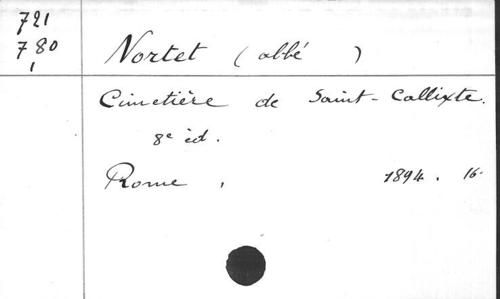 721
780 Nortet (abbé )
1
Cimetière de Saint-Callixte.
8e éd.
Rome, 1894. 16·